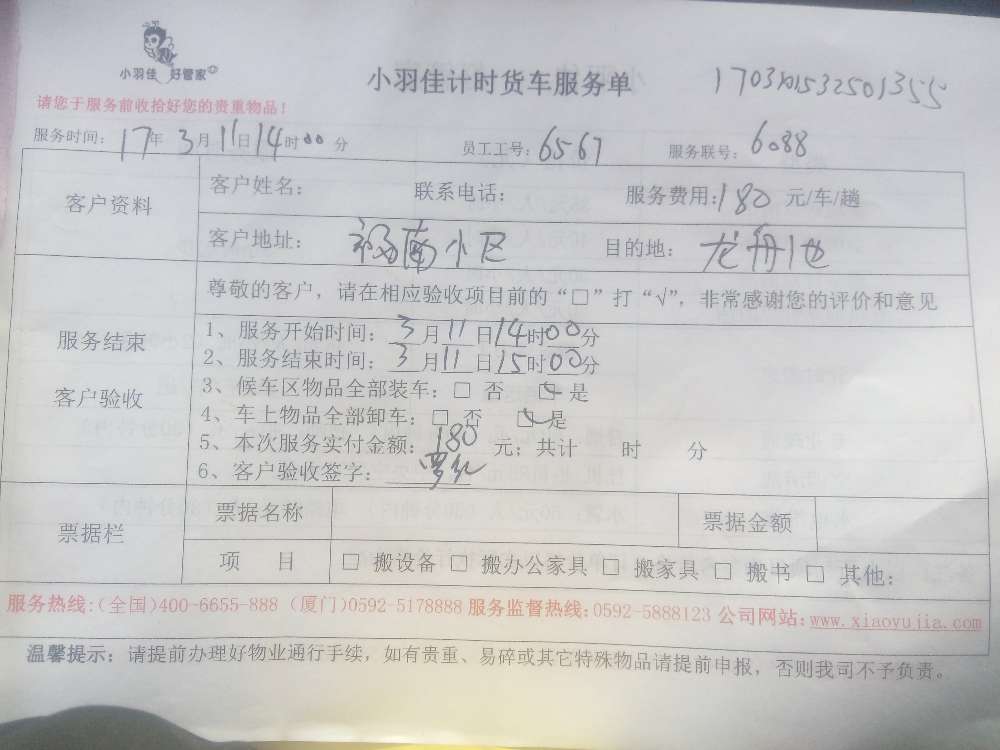 小羽佳 好管家
小羽佳计时货车服务单
请您于服务前收拾好您的贵重物品！
服务时间：17年3月11日14时00分 员工工号：6567 服务联号：6088
客户资料
客户姓名： 联系电话： 服务费用：180 元/车/趟
客户地址：福南小区 目的地：龙舟池
服务结束
客户验收
尊敬的客户，请在相应验收项目前的“□”打“√”，非常感谢您的评价和意见
1、服务开始时间：3月11日14时00分
2、服务结束时间：3月11日15时00分
3、候车区物品全部装车：□ 否 ☑ 是
4、车上物品全部卸车：□ 否 ☑ 是
5、本次服务实付金额：180 元；共计 时 分
6、客户验收签字：
票据栏
票据名称 票据金额
项 目 □ 搬设备 □ 搬办公家具 □ 搬家具 □ 搬书 □ 其他：
服务热线：(全国)400-6655-888 (厦门)0592-5178888 服务监督热线：0592-5888123 公司网站：www.xiaoyujia.com
温馨提示：请提前办理好物业通行手续，如有贵重、易碎或其它特殊物品请提前申报，否则我司不予负责。